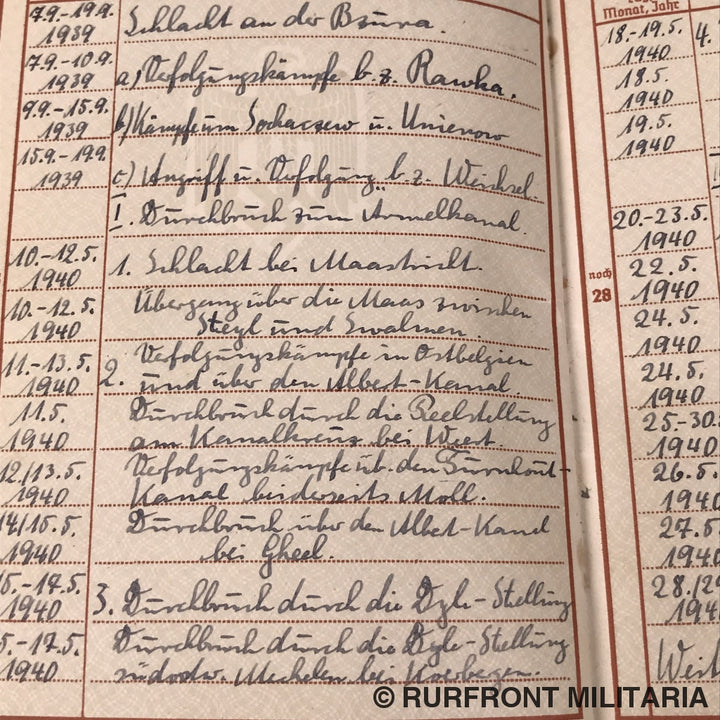 7.9.-19.9.
1939
Schlacht an der Bzura.
7.9.-10.9.
1939
a) Verfolgungskämpfe b. z. Rawka.
9.9.-15.9.
1939
b) Kämpfe um Sochaczew u.
15.9.-19.9.
1939
c) Angriff u. Verfolgung b. z. Weichsel
I. Durchbruch zum Ärmelkanal.
10.-12.5.
1940
1. Schlacht bei Maastricht.
10.-12.5.
1940
Übergang über die Maas zwischen
Steyl und Swalmen.
11.-13.5.
1940
2. Verfolgungskämpfe in Ostbelgien
und über den Albert-Kanal.
11.5.
1940
Durchbruch durch die Peelstellung
am Kanalkreuz bei Weert.
12/13.5.
1940
Verfolgungskämpfe üb. den Turnhout-
Kanal beiderseits Moll.
14/15.5.
1940
Durchbruch über den Albert-Kanal
bei Gheel.
5.-17.5.
1940
3. Durchbruch durch die Dyle-Stellung
5.-17.5.
1940
Durchbruch durch die Dyle-Stellung
Mechelen bei
Monat, Jahr
18.-19.5.
1940
4.
18.5.
1940
19.5.
1940
20.-23.5.
1940
noch
28
22.5.
1940
24.5.
1940
24.5.
1940
25-30.
1940
26.5.
1940
27.5.
1940
28./2
194
Weit
© RURFRONT MILITARIA